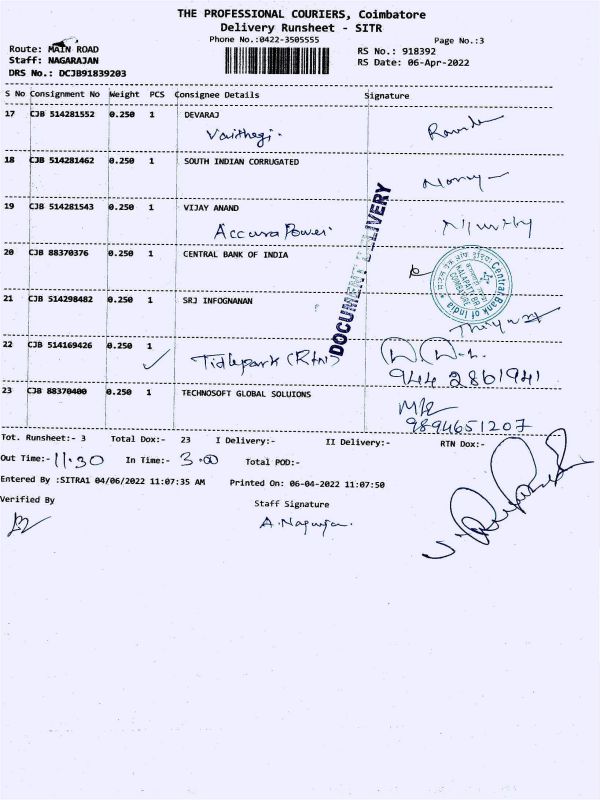 THE PROFESSIONAL COURIERS, Coimbatore
Delivery Runsheet - SITR
Phone No.:0422-3505555
Page No.:3
Route: MAIN ROAD
RS No.: 918392
Staff: NAGARAJAN
RS Date: 06-Apr-2022
DRS No.: DCJB91839203
S No Consignment No Weight PCS Consignee Details Signature
17 CJB 514281552 0.250 1 DEVARAJ
Vaithegi.
18 CJB 514281462 0.250 1 SOUTH INDIAN CORRUGATED
19 CJB 514281543 0.250 1 VIJAY ANAND
Accura Power.
20 CJB 88370376 0.250 1 CENTRAL BANK OF INDIA
Central Bank of India
21 CJB 514298482 0.250 1 SRJ INFOGNANAN
DOCUMENT DELIVERY
22 CJB 514169426 0.250 1
Tidlepark (Rtn)
944 2861941
23 CJB 88370400 0.250 1 TECHNOSOFT GLOBAL SOLUIONS
9894651207
Tot. Runsheet:- 3 Total Dox:- 23 I Delivery:- II Delivery:- RTN Dox:-
Out Time:- 11.30 In Time:- 3.00 Total POD:-
Entered By :SITRA1 04/06/2022 11:07:35 AM Printed On: 06-04-2022 11:07:50
Verified By Staff Signature
A. Nagarajan.